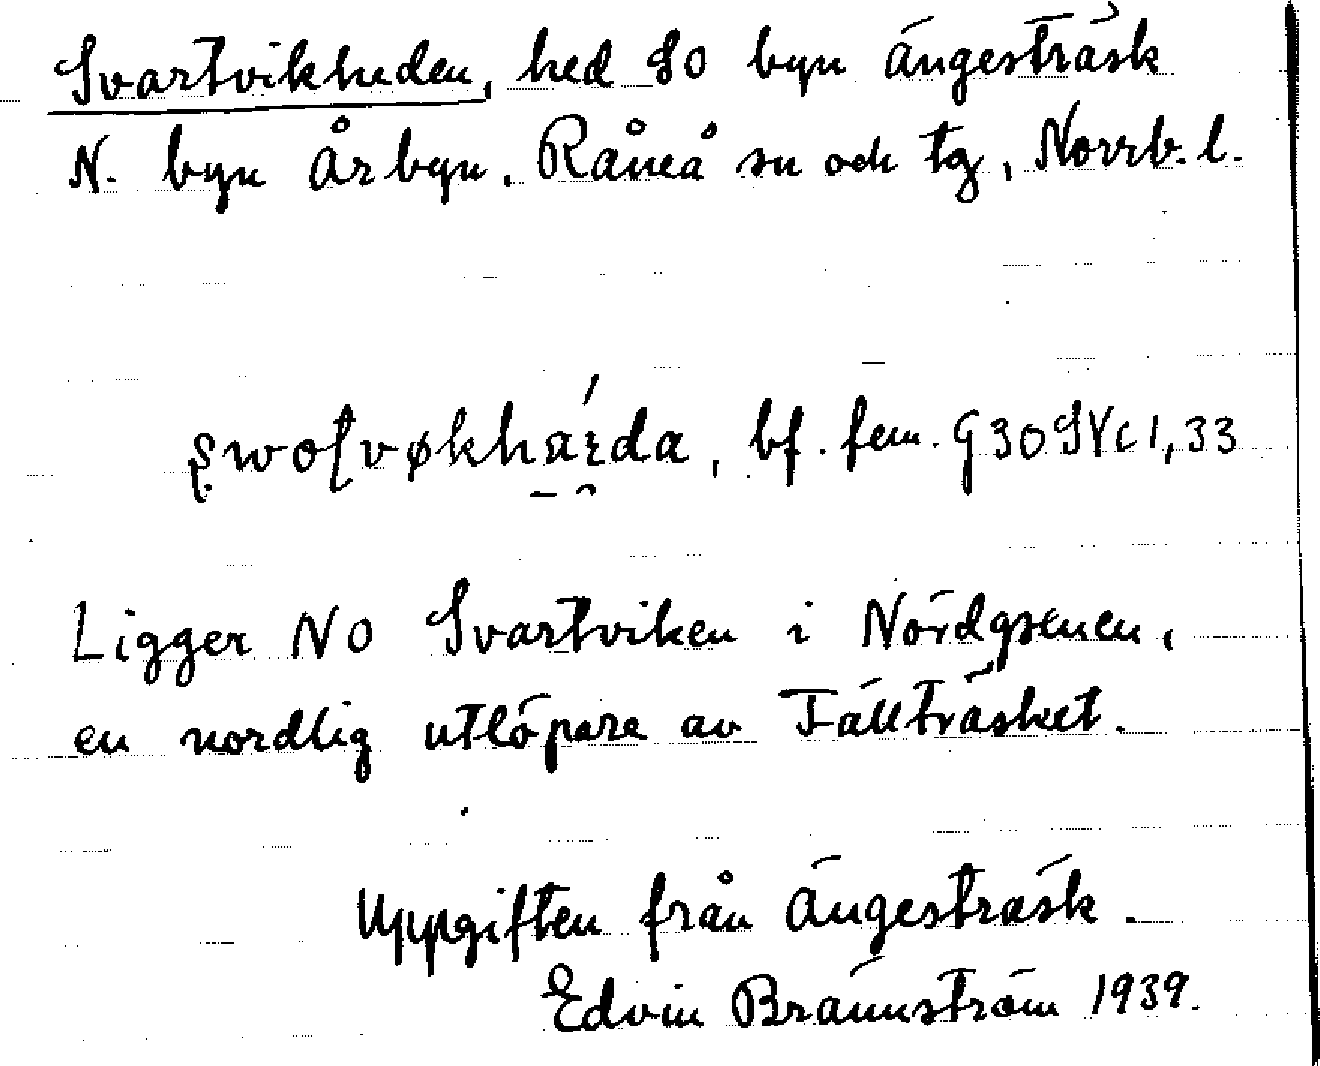 Svartvikheden, hed SO byn Ängesträsk
N. byn Årbyn. Råneå sn och tg, Norrb. l.
bf. fem. G30SVc1,33
Ligger NO Svartviken i Nördgsenen,
en nordlig utlöpare av Fällträsket.
Uppgiften från Ängesträsk.
Edvin Brännström 1939.